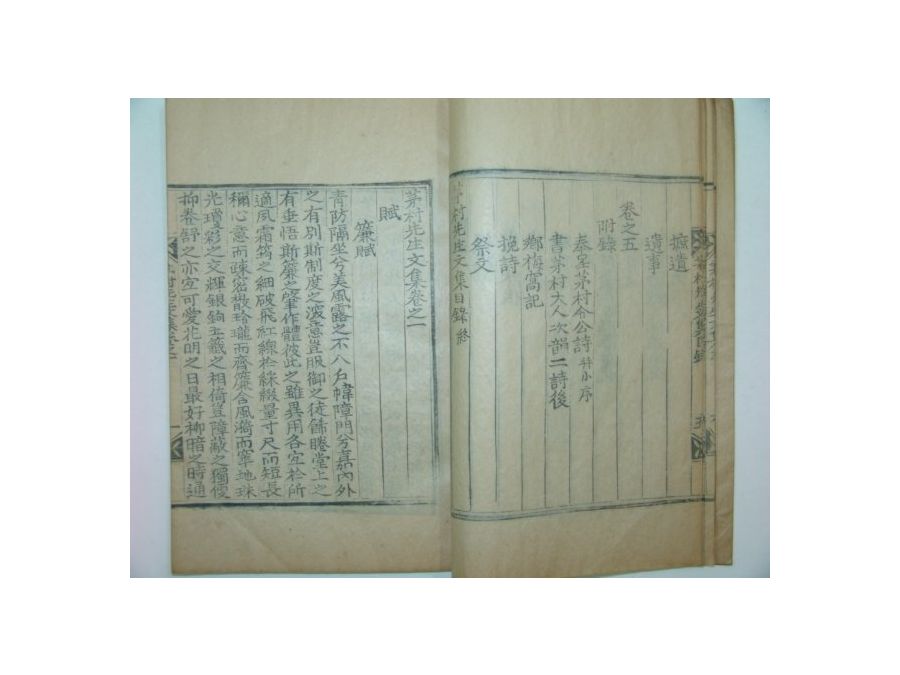 摭遺
遺事
卷之五
附錄
奉呈茅村令公詩 幷小序
書茅村大人次韻二詩後
鄉梅窩記
挽詩
祭文
茅村先生文集目錄 終
茅村先生文集卷之一
賦
簾賦
靑防隔坐兮美風露之不入戶幃障門兮嘉內外
之有別斯制度之深意豈服御之徒飾睠堂上之
有垂悟斯簾之肇作體彼此之雖異用各宜於所
適夙霜筠之細破飛紅線於綵綴量寸尺而短長
稱心意而疎密散玲瓏而齊簾含風漪而窣地珠
光瓊彩之交輝銀鉤玉籤之相倚豈障蔽之獨優
抑卷舒之亦宜可愛花明之日最好柳暗之時通